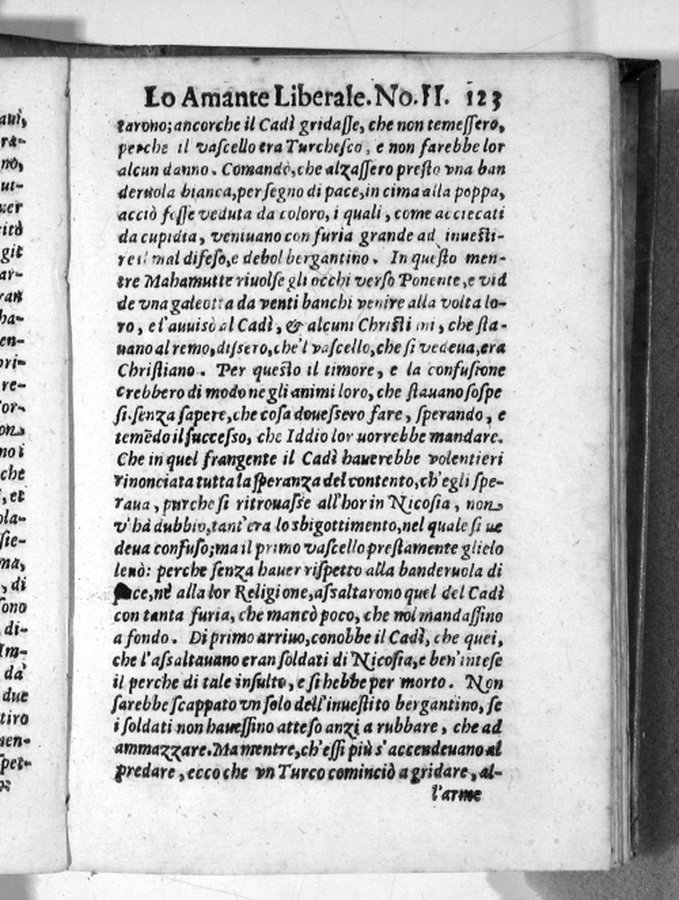 Lo Amante Liberale. No. II. 123
tarono; ancorche il Cadì gridasse, che non temessero,
perche il vascello era Turchesco, e non farebbe lor
alcun danno. Comandò, che alzassero presto vna ban
deruola bianca, per segno di pace, in cima alla poppa,
acciò fosse veduta da coloro, i quali, come acciecati
da cupidia, veniuano con furia grande ad inuesti-
re il mal difeso, e debol bergantino. In questo men-
tre Mahamutte riuolse gli occhi verso Ponente, e vid
de vna galeotta da venti banchi venire alla volta lo-
ro, e l'auuisò al Cadì, & alcuni Christiani, che sta-
uano al remo, dissero, che'l vascello, che si vedeua, era
Christiano. Per questo il timore, e la confusione
crebbero di modo ne gli animi loro, che stauano sospe
si. senza sapere, che cosa douessero fare, sperando, e
temẽdo il successo, che Iddio lor uorrebbe mandare.
Che in quel frangente il Cadì hauerebbe volentieri
rinonciata tutta la speranza del contento, ch'egli spe-
raua, purche si ritrouasse all'hor in Nicosia, non
v'hà dubbio, tant'era lo sbigottimento, nel quale si ue
deua confuso; ma il primo vascello prestamente glielo
leuò: perche senza hauer rispetto alla banderuola di
pace, nè alla lor Religione, assaltarono quel del Cadì
con tanta furia, che mancò poco, che nol mandassino
a fondo. Di primo arriuo, conobbe il Cadì, che quei,
che l'assaltauano eran soldati di Nicosia, e ben'intese
il perche di tale insulto, e si hebbe per morto. Non
sarebbe scappato vn solo dell'inuestito bergantino, se
i soldati non hauessino atteso anzi a rubbare, che ad
ammazzare. Ma mentre, ch'essi più s'accendeuano al
predare, ecco che vn Turco cominciò a gridare, al-
l'arme